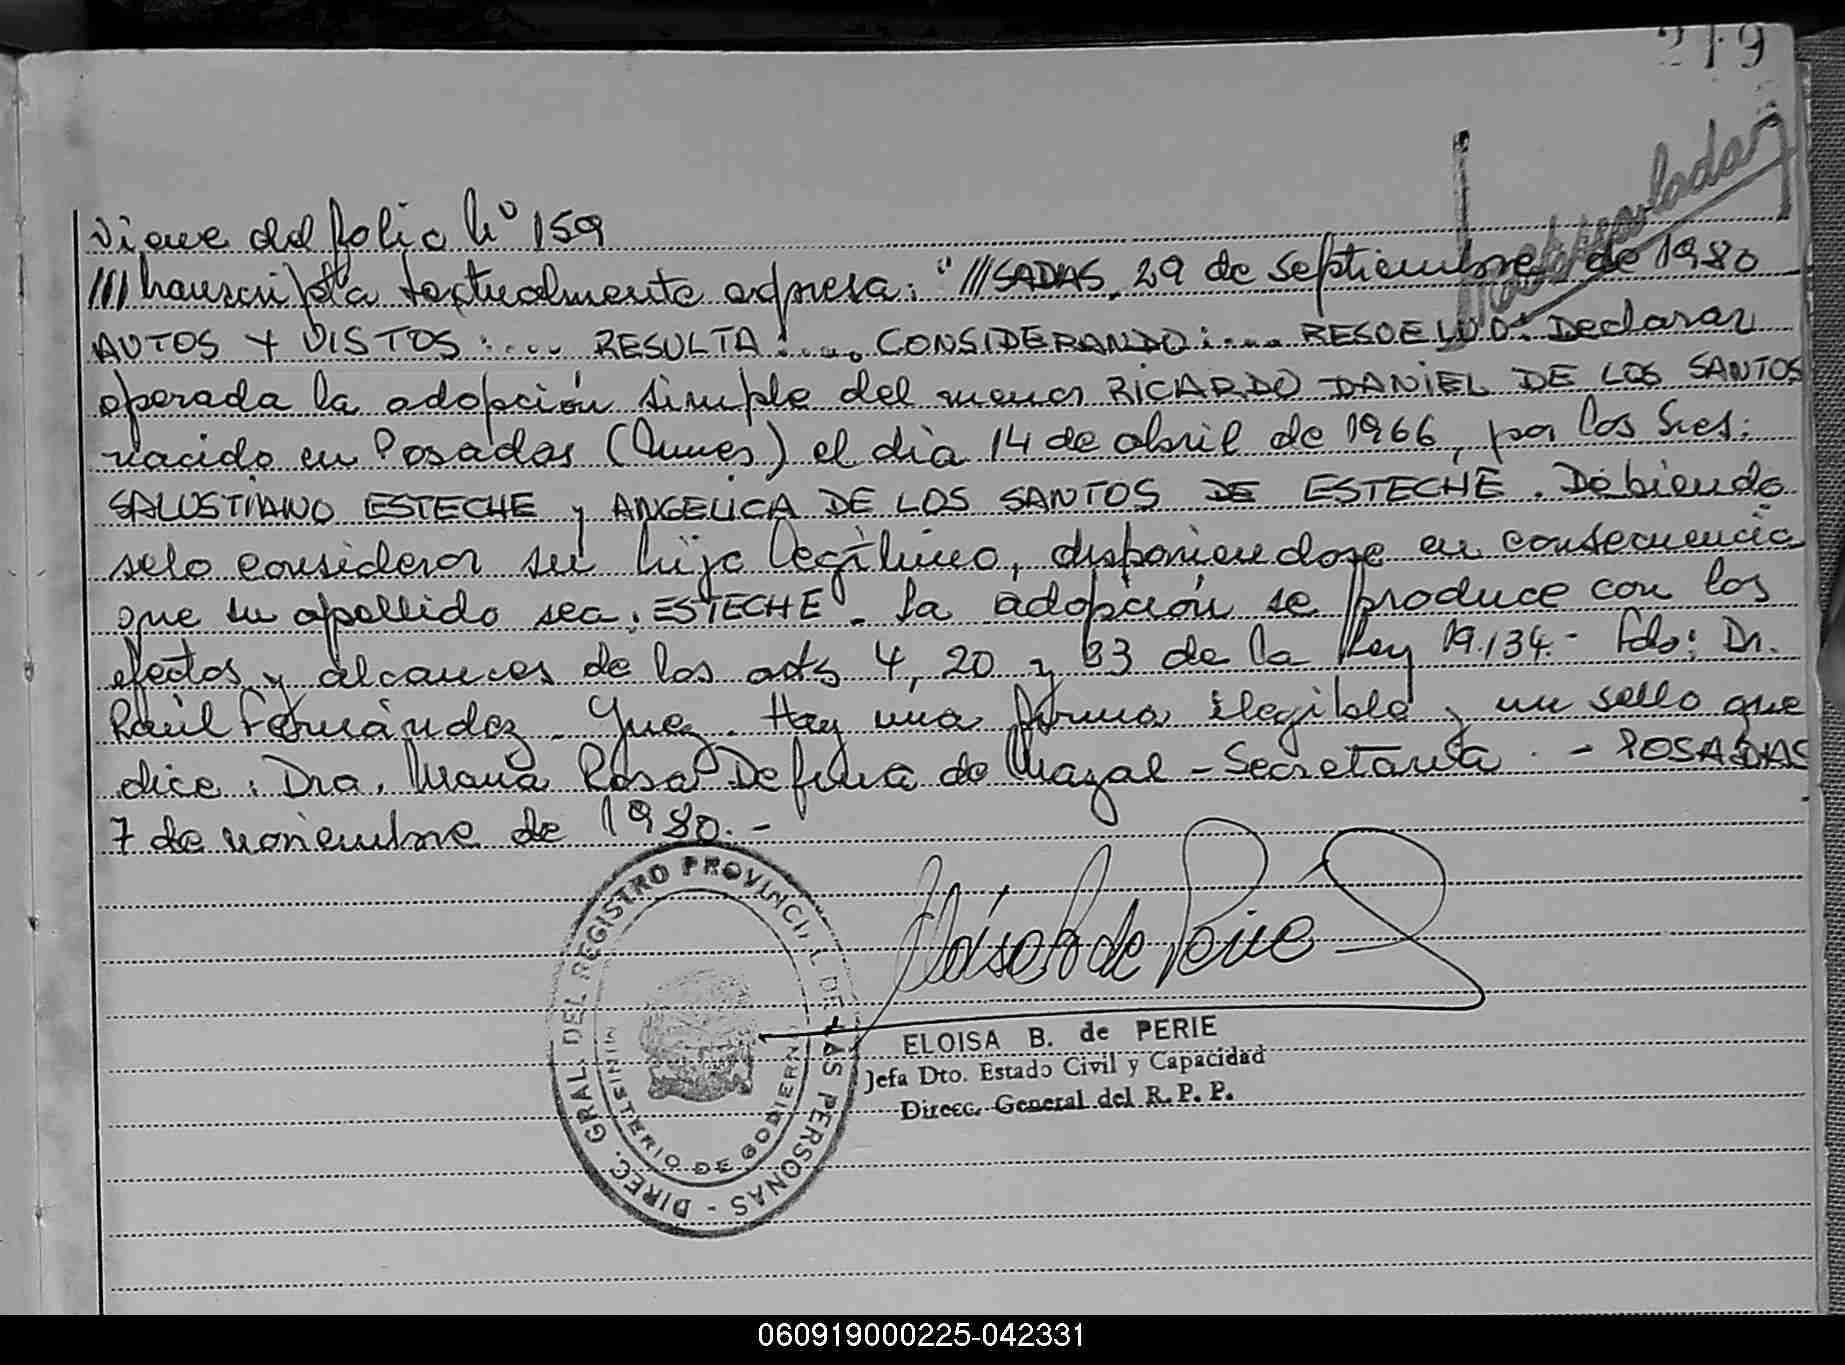 219
Viene del folio Nº 159
///transcripta textualmente expresa: "///SADAS, 29 de septiembre de 1980
AUTOS Y VISTOS:.... RESULTA:.... CONSIDERANDO:.... RESUELVO: Declarar
operada la adopción simple del menor RICARDO DANIEL DE LOS SANTOS
nacido en Posadas (Mnes) el día 14 de abril de 1966, por los Sres:
SALUSTIANO ESTECHE y ANGELICA DE LOS SANTOS DE ESTECHE. Debiendo
selo considerar su hijo legítimo, disponiendose en consecuencia
que su apellido sea: ESTECHE. La adopción se produce con los
efectos y alcances de los arts 4, 20 y 33 de la Ley 19.134.- Fdo: Dr.
Raúl Fernández. Juez. Hay una firma ilegible y un sello que
dice: Dra. María Rosa De fina de Mazal - Secretaria. - POSADAS
7 de noviembre de 1980.-
DIREC. GRAL. DEL REGISTRO PROVINCIAL DE LAS PERSONAS -
MINISTERIO DE GOBIERNO
Eloisa B de Perie
ELOISA B. de PERIE
Jefa Dto. Estado Civil y Capacidad
Direcc. General del R. P. P.
060919000225-042331